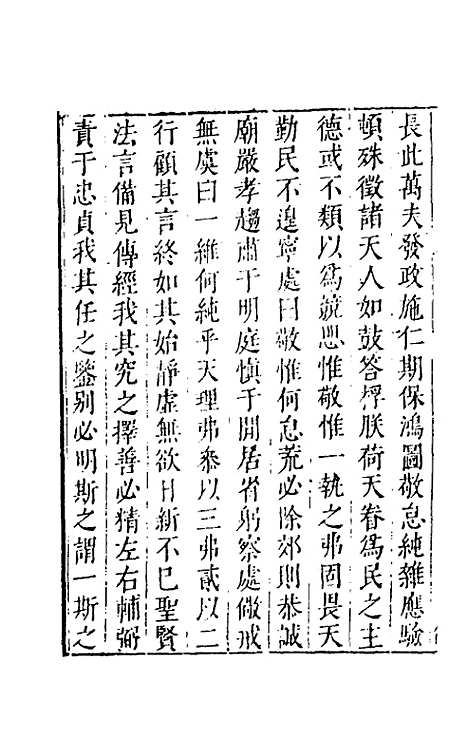 長此萬夫發政施仁期保鴻圖敬怠純雜應驗
頓殊徵諸天人如鼓答桴朕荷天眷爲民之主
德或不類以爲兢思惟敬惟一執之弗固畏天
勤民不遑寧處曰敬惟何怠荒必除郊則恭誠
廟嚴孝趨肅于明庭愼于閒居省躬察處儆戒
無虞曰一維何純乎天理弗叅以三弗貳以二
行顧其言終如其始靜虛無欲日新不已聖賢
法言備見傳經我其究之擇善必精左右輔弼
責于忠貞我其任之鑒别必明斯之謂一斯之